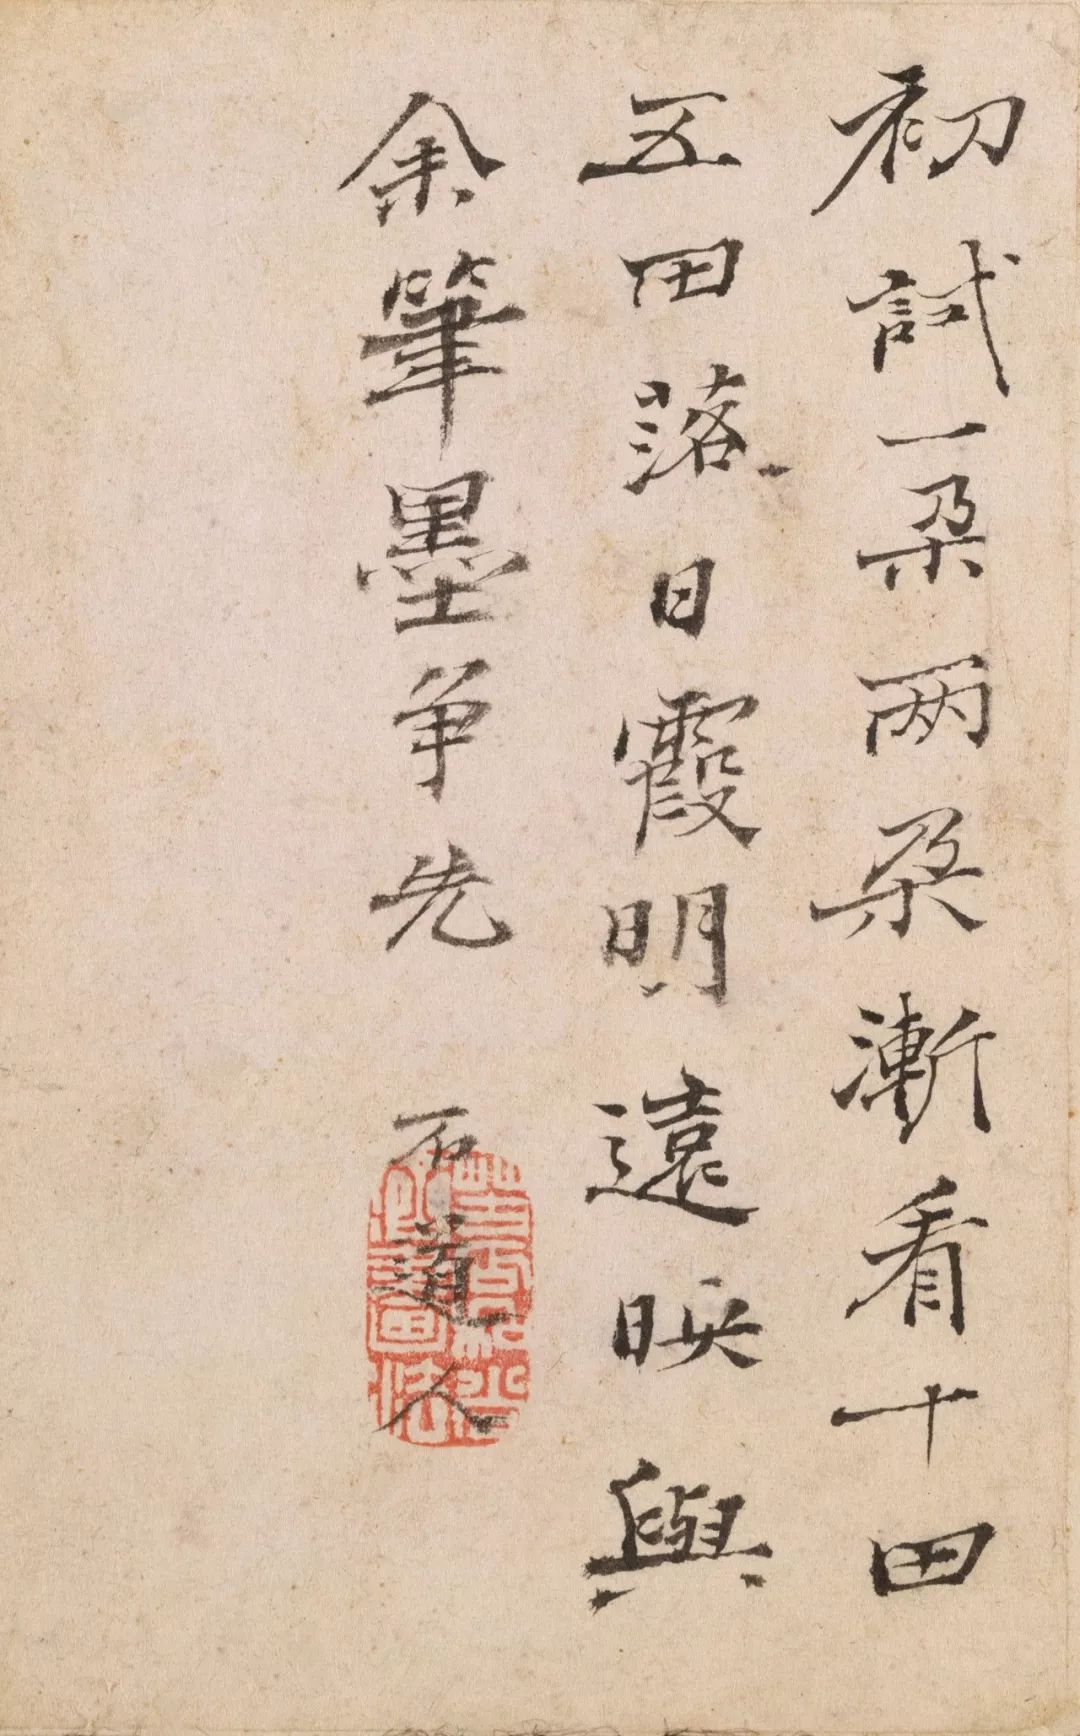 初試一朵兩朵漸看十田
五田落日霞明遠映與
余筆墨争先 石道人